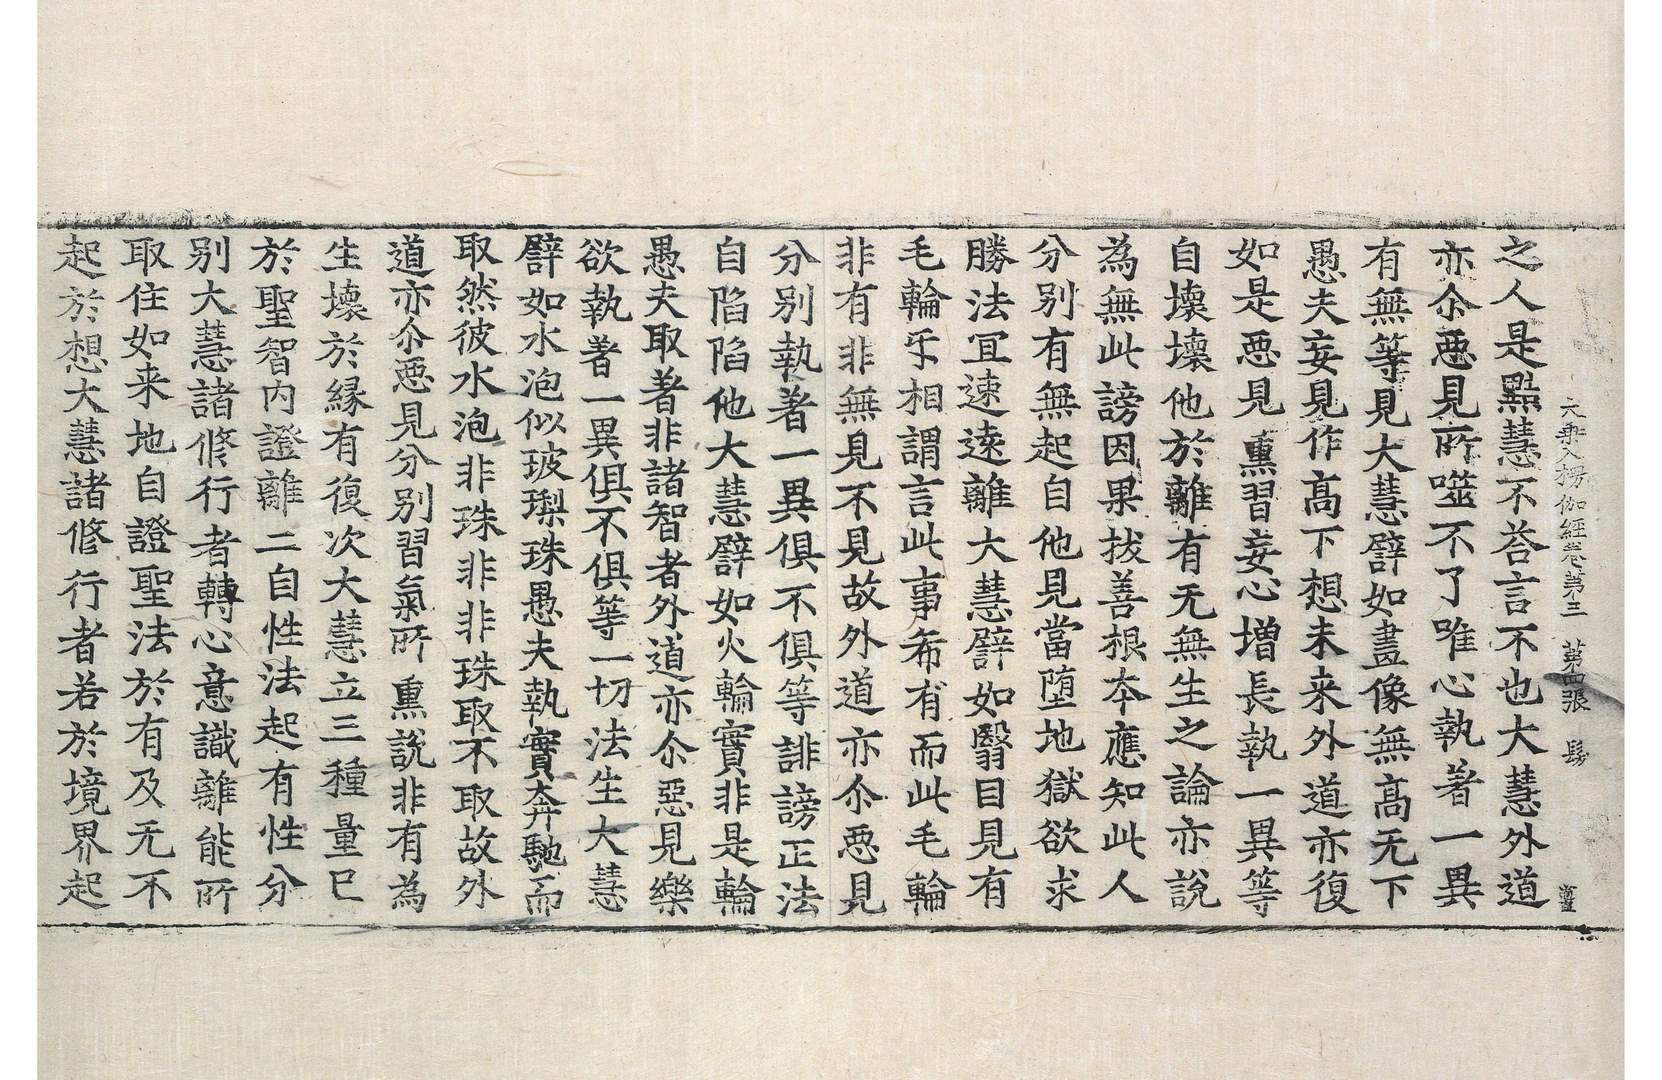 大乘入楞伽經卷第三 第四張 髮
之人是黠慧不荅言不也大慧外道
亦尒惡見所噬不了唯心執著一異
有無等見大慧譬如畫像無高无下
愚夫妄見作高下想未来外道亦復
如是惡見熏習妄心增長執一異等
自壞壞他於離有无無生之論亦說
為無此謗因果拔善根本應知此人
分别有無起自他見當墮地獄欲求
勝法冝速遠離大慧譬如翳目見有
毛輪乎相謂言此事希有而此毛輪
非有非無見不見故外道亦尒惡見
分别執著一異俱不俱等誹謗正法
自陷陷他大慧譬如火輪實非是輪
愚夫取著非諸智者外道亦尒惡見樂
欲執著一異俱不俱等一切法生大慧
譬如水泡似玻瓈珠愚夫執實奔馳而
取然彼水泡非珠非非珠取不取故外
道亦尒惡見分别習氣所熏說非有為
生壞於緣有復次大慧立三種量已
於聖智内證離二自性法起有性分
别大慧諸修行者轉心意識離能所
取住如来地自證聖法於有及无不
起於想大慧諸修行者若於境界起